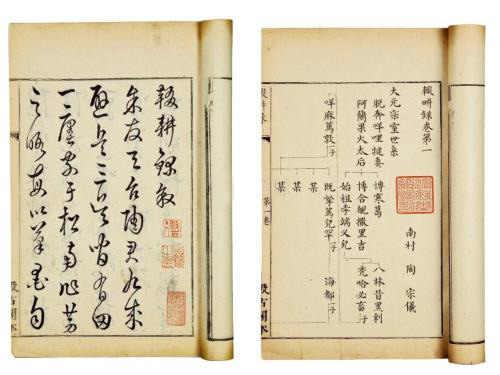 輟耕錄敘
余友天台陶君九成
避兵三吳間有田
一廛家于松南作勞
之暇每以筆墨自
汲古閣本
輟畊錄卷第一
南村 陶宗儀
大元宗室世系
脫奔咩哩犍妻
阿蘭果火太后
博寒葛
博合覩撒里吉
始祖孛端叉兒
八林昔黑剌
禿哈必畜子
咩麻篤敦子
既拏篤兒罕子
海都子
某
某
某
第一卷
汲古閣本